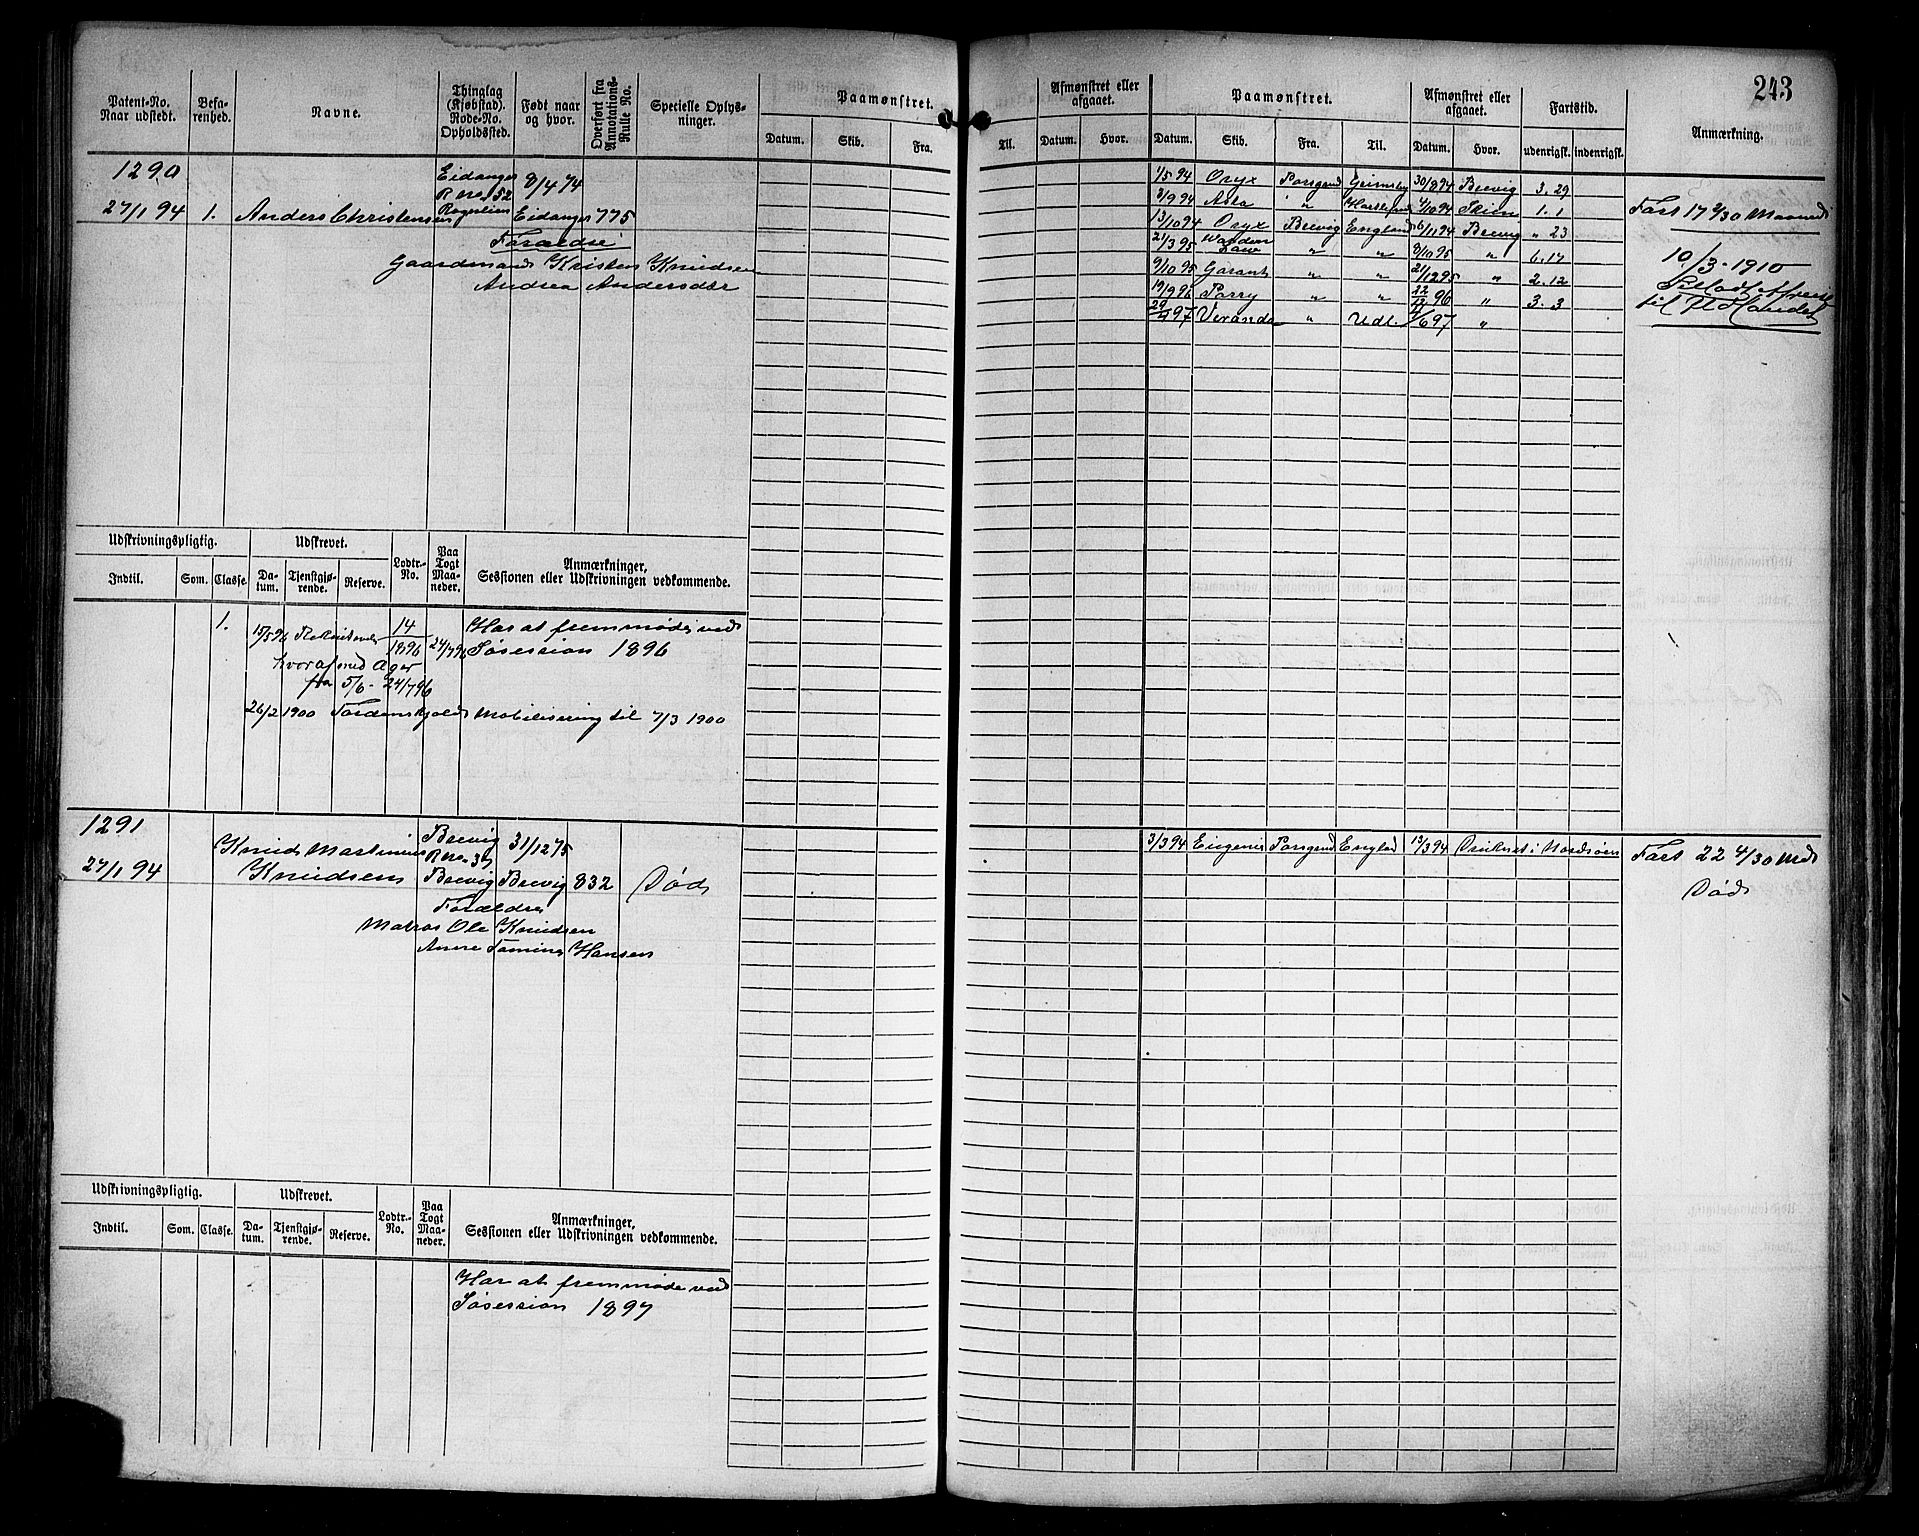 243
Patent-No.
Naar udstedt.
Befa-
renhed.
Navne.
Thinglag
(Kjøbstad).
Rode-No.
Opholdssted.
Født naar
og hvor.
Overført fra
Annotations-
Rulle No.
Specielle Oplys-
ninger.
Paamønstret.
Datum. Skib. Fra.
Til.
Afmønstret eller
afgaaet.
Datum. Hvor.
Paamønstret.
Datum. Skib. Fra. Til.
Afmønstret eller
afgaaet.
Datum. Hvor.
Fartstid.
udenrigsk. indenrigsk.
Anmærkning.
1290
27/1 94 1. Anders Christensen
Eidanger
R no. 52
8/4 74
Eidanger 775
Forældre
Gaardmand Kristen Knudsen
Andrea Andersdtr
1/5 94 Oryx Porsgrund Grimsby 30/8 94 Brevig 3. 29
2/9 94 Asta " 4/10 94 Skien 1. 1
13/10 94 Oryx Brevig England 6/11 94 Brevig " 23
21/3 95 " " 8/10 95 " 6. 17
9/10 95 Garant " " 21/12 95 " 2. 12
19/9 96 Parry " " 22/12 96 " 3. 3
Veranda " Udl. 4/6 97 "
Fart 17 2/30 Maaned
10/3-1910
til Handel
Udskrivningspligtig. Udskrevet.
Lodtr.-
No.
Paa
Togt
Maa-
neder.
Anmærkninger,
Sessionen eller Udskrivningen vedkommende.
Indtil. Som. Classe. Da-
tum. Tjenstgjø-
rende. Reserve.
1. 15/5 96 14/1896 24/7 96 Har at fremmøde ved
Søsession 1896
hvoraf med Ager
fra 5/6 - 24/7 96
26/2 1900 Tordenskjold Mobilisering til 7/3 1900
1291
27/1 94
Knud Martinius
Knudsen
Brevig
R no. 37
Brevig
31/12 75
Brevig 832 Død
Forældre
Matros Ole Knudsen
Anne Hansen
3/3 94 Eugenie Porsgrund England 13/3 94 Druknet i Nordsøen
Fart 22 4/30 Mds
Død
Udskrivningspligtig. Udskrevet.
Lodtr.-
No.
Paa
Togt
Maa-
neder.
Anmærkninger,
Sessionen eller Udskrivningen vedkommende.
Indtil. Som. Classe. Da-
tum. Tjenstgjø-
rende. Reserve.
Har at fremmøde ved
Søsession 1897